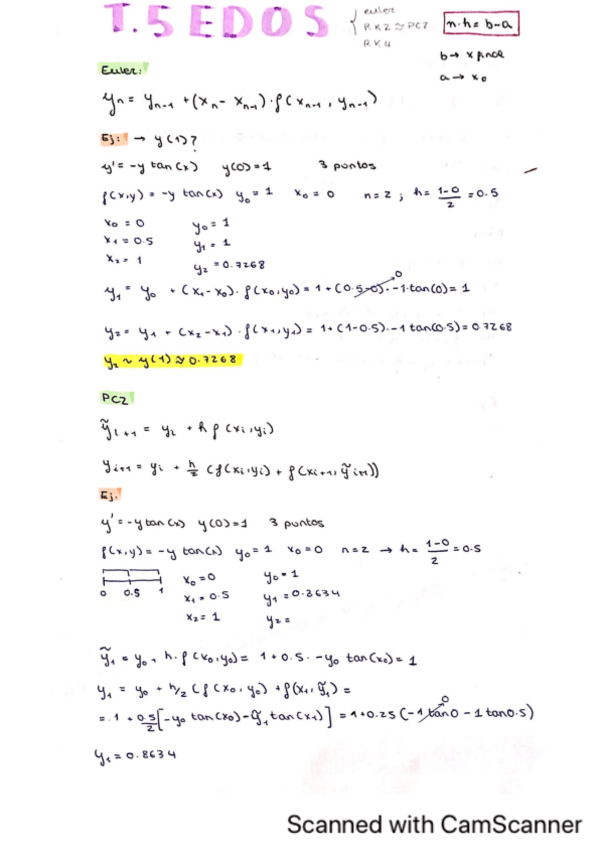 T.5 EDOS
{ euler
RK2 ≈ PC2
RK4
n·h = b-a
b → x final
a → x₀
Euler:
yₙ = yₙ₋₁ + (xₙ - xₙ₋₁) · f(xₙ₋₁, yₙ₋₁)
Ej: → y(1)?
y' = -y tan(x) y(0)=1 3 puntos
f(x,y) = -y tan(x) y₀=1 x₀=0 n=2 ; h= (1-0)/2 = 0.5
x₀=0 y₀=1
x₁=0.5 y₁=1
x₂=1 y₂=0.7268
y₁ = y₀ + (x₁-x₀)·f(x₀,y₀) = 1+(0.5-0)·-1·tan(0) = 1
0
y₂ = y₁ + (x₂-x₁)·f(x₁,y₁) = 1+(1-0.5)·-1 tan(0.5) = 0.7268
y₂ ~ y(1) ≈ 0.7268
PC2
ỹᵢ₊₁ = yᵢ + h f(xᵢ,yᵢ)
yᵢ₊₁ = yᵢ + h/2 (f(xᵢ,yᵢ) + f(xᵢ₊₁, ỹᵢ₊₁))
Ej.
y' = -y tan(x) y(0)=1 3 puntos
f(x,y) = -y tan(x) y₀=1 x₀=0 n=2 → h= (1-0)/2 = 0.5
0 0.5 1
x₀=0 y₀=1
x₁=0.5 y₁=0.8634
x₂=1 y₂=
ỹ₁ = y₀ + h·f(x₀,y₀) = 1+0.5·-y₀ tan(x₀) = 1
y₁ = y₀ + h/2 (f(x₀,y₀) + f(x₁,ỹ₁) =
= 1 + 0.5/2 [-y₀ tan(x₀) - ỹ₁ tan(x₁)] = 1+0.25 (-1 tan0 - 1 tan0.5)
0
y₁ = 0.8634
Scanned with CamScanner